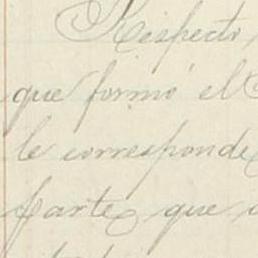 Respecto
que formó el
le corresponde
parte que